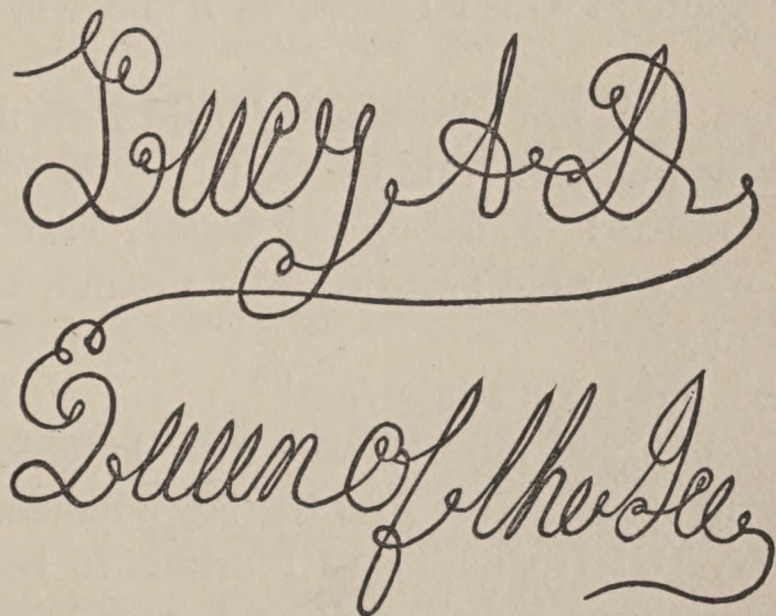 Lucy A D
Queen of the Ice